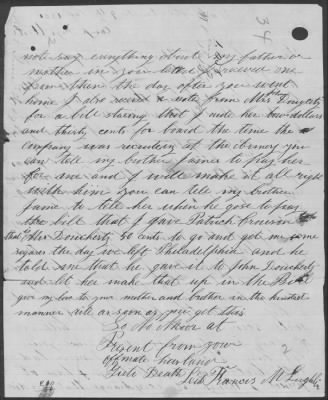 note say enything about my father or
mother in your letter I received one
from them the day after you went
home I also received a note from Mrs Doughrty
for a bill stating that I owde her two dollars
and thirty cents for board the time the
company was recruiting at the Armory you
can tell my brother James to pay her
for me and I will make it all right
with him you can tell my brother
Jame to tell her when he goes to pay
the bill that I gave Patrick
that Mr Doucherty 50 cents to go and get me some
segars the day we left Philadelphia and he
told me that he gave it to John Doucherty
and let her make that up in the Bill
give my love to your mother and brother in the kindest
manner rite as soon as you get this
So No More at
Present from your
affmate husband
till Death
Francis McLaughlin